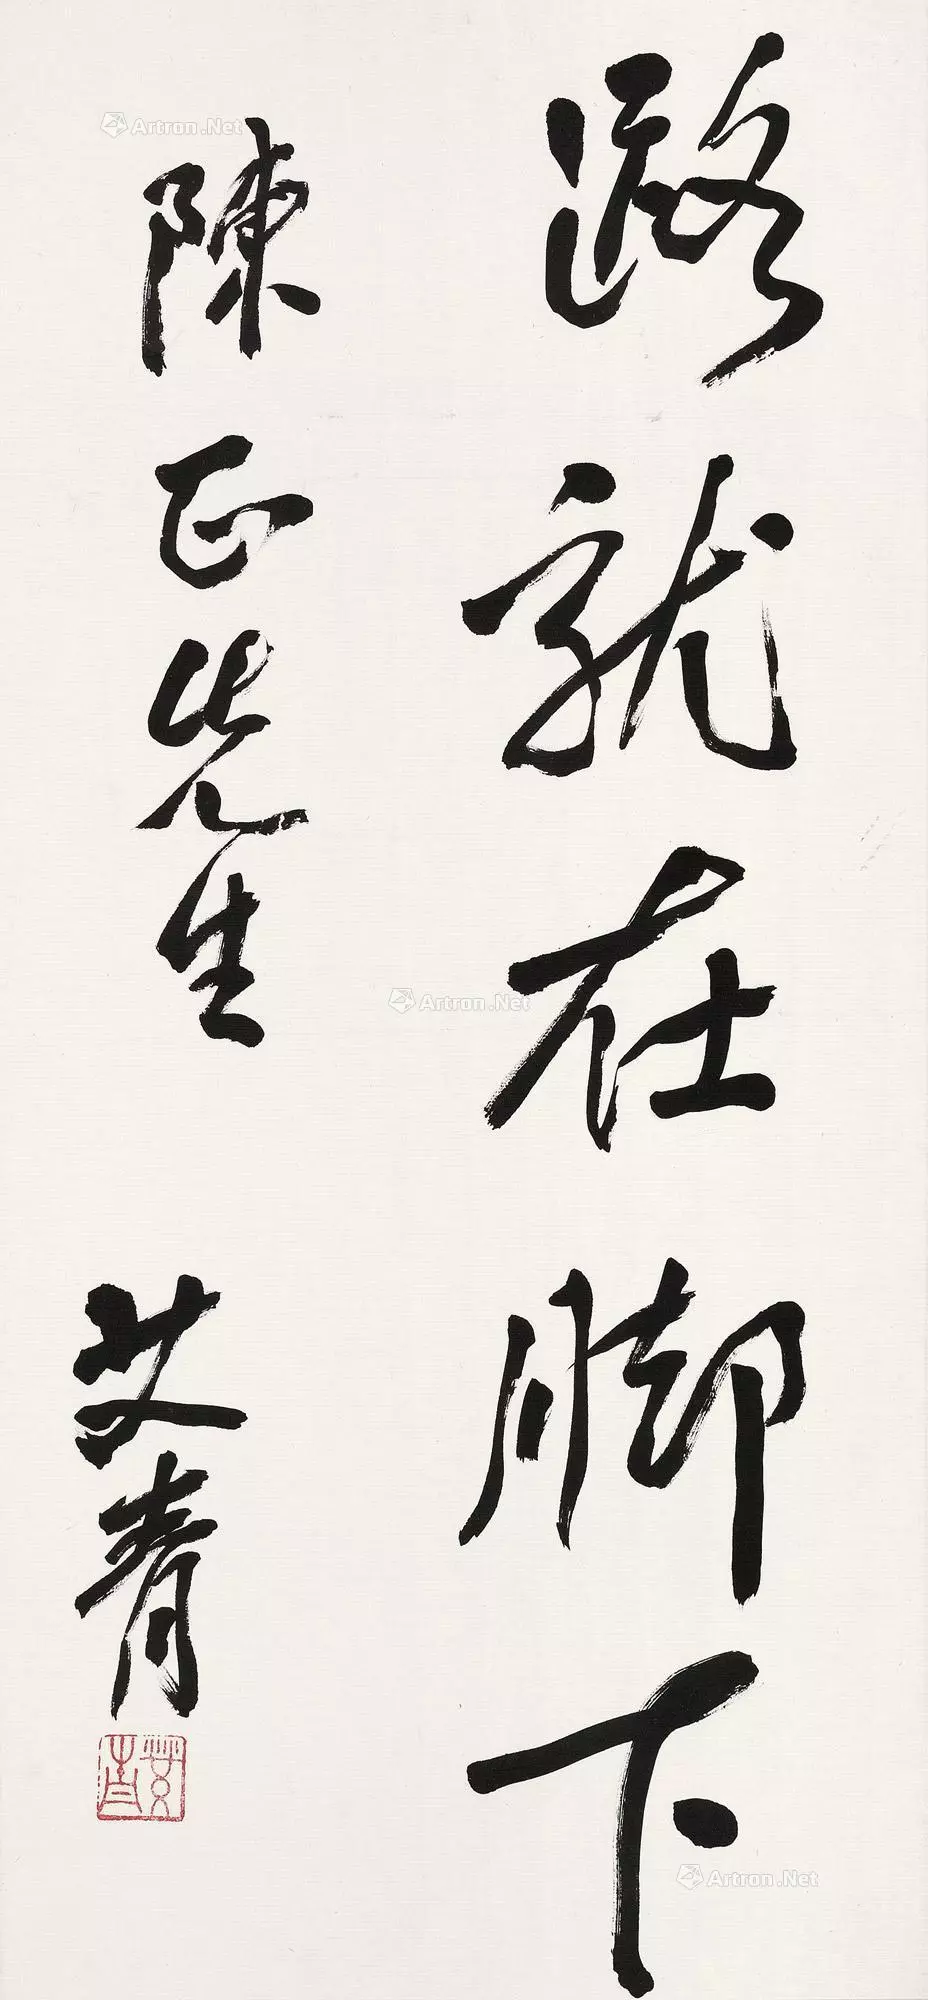 路就在脚下
陳正光先生
艾青
艾青
Artron.Net
Artron.Net
Artron.Net